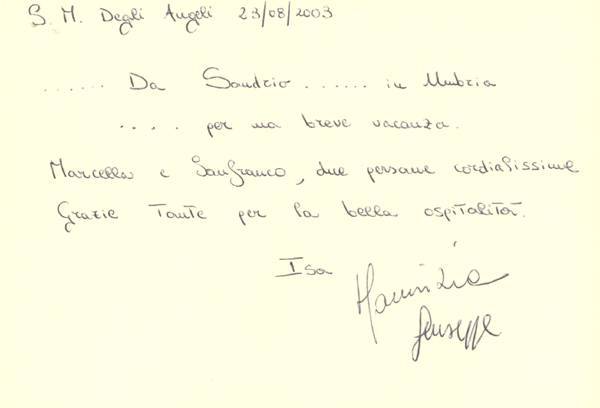 S. M. Degli Angeli 23/08/2003
...... Da Sondrio ...... in Umbria
.... per una breve vacanza.
Marcella e Gianfranco, due persone cordialissime
Grazie Tante per la bella ospitalità.
Isa
Giuseppe